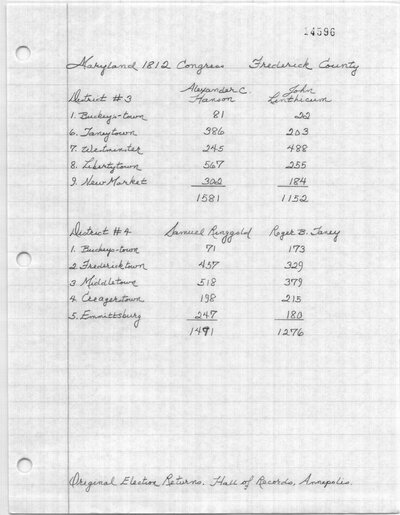 14596
Maryland 1812 Congress Frederick County
District #3 Alexander C. Hanson John Linthicum
1. Buckeys-town 81 22
6. Taneytown 386 203
7. Westminster 245 488
8. Libertytown 567 255
9. New Market 302 184
1581 1152
District #4 Samuel Ringgold Roger B. Taney
1. Buckeys-town 71 173
2. Fredericktown 457 329
3 Middletown 518 379
4. Creagerstown 198 215
5. Emmittsburg 247 180
1491 1276
Original Election Returns. Hall of Records, Annapolis.